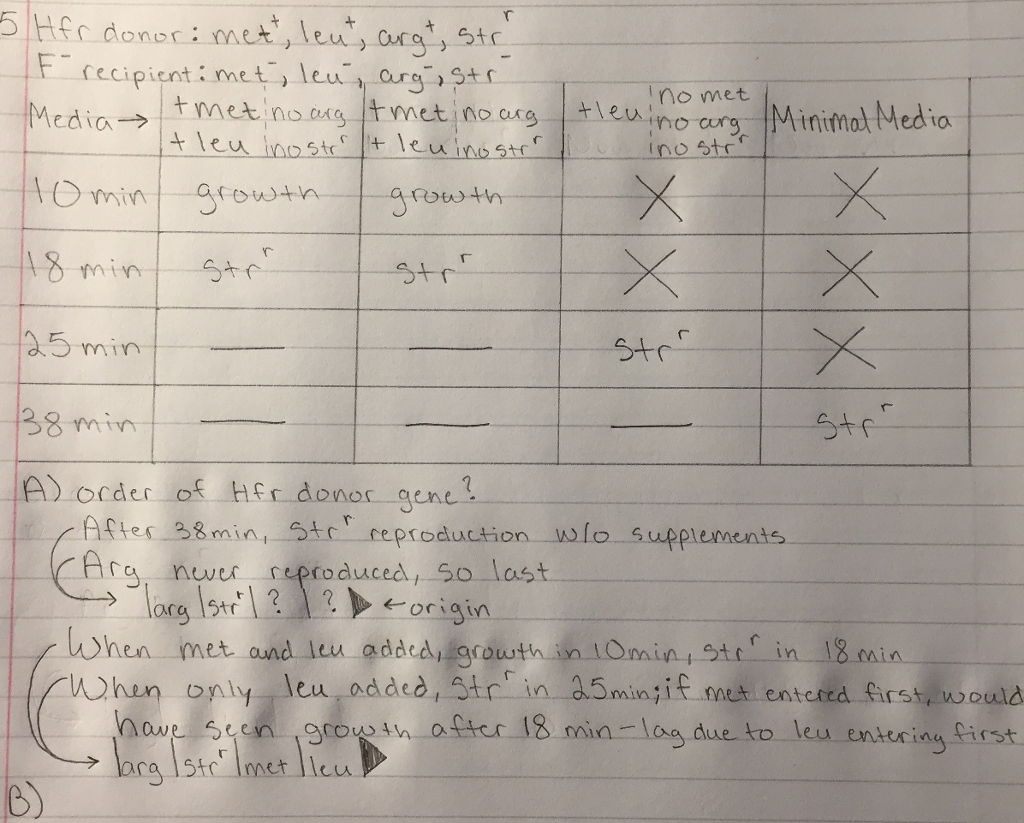 5 Hfr donor: met⁺, leu⁺, arg⁺, strʳ
F⁻ recipient: met⁻, leu⁻, arg⁻, str⁻
Media → +met no arg +met no arg +leu no met Minimal Media
+ leu no strʳ + leu no strʳ no arg
no strʳ
10 min growth growth X X
18 min strʳ strʳ X X
25 min — — strʳ X
38 min — — — strʳ
A) order of Hfr donor gene?
After 38min, strʳ reproduction w/o supplements
Arg never reproduced, so last
→ |arg|strʳ| ? | ? ▶ ← origin
When met and leu added, growth in 10min, strʳ in 18 min
When only leu added, strʳ in 25min; if met entered first, would
have seen growth after 18 min - lag due to leu entering first
→ |arg|strʳ|met|leu▶
B)